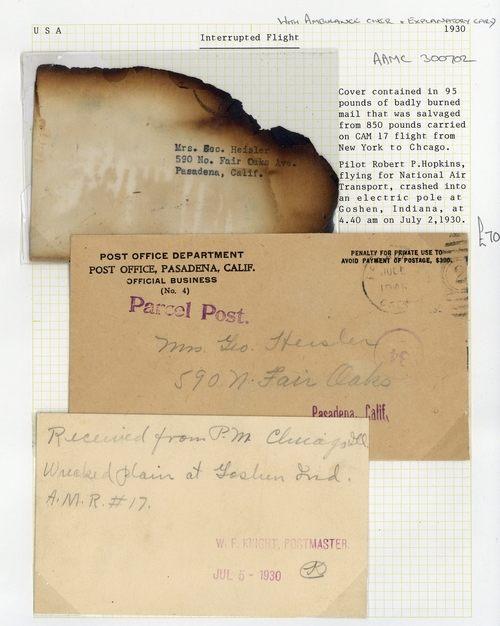 With Ambulance Cover & Explanatory Card
USA
1930
Interrupted Flight
AAMC 300702
Cover contained in 95
pounds of badly burned
mail that was salvaged
from 850 pounds carried
on CAM 17 flight from
New York to Chcago.
Pilot Robert P.Hopkins,
flying for National Air
Transport, crashed into
an electric pole at
Goshen, Indiana, at
4.40 am on July 2,1930.
£70
Mrs. Geo. Heisler
590 No. Fair Oaks Ave.
Pasadena, Calif.
POST OFFICE DEPARTMENT
POST OFFICE, PASADENA, CALIF.
OFFICIAL BUSINESS
(No. 4)
PENALTY FOR PRIVATE USE TO
AVOID PAYMENT OF POSTAGE, $300.
Parcel Post.
JUL
2
34
Mrs. Geo. Heisler
590 N. Fair Oaks
Pasadena, Calif.
Received from P.M. Chicago Ill
Wrecked plain at Goshen Ind.
A.M.R. #17.
W. F. KNIGHT, POSTMASTER.
JUL 5 - 1930